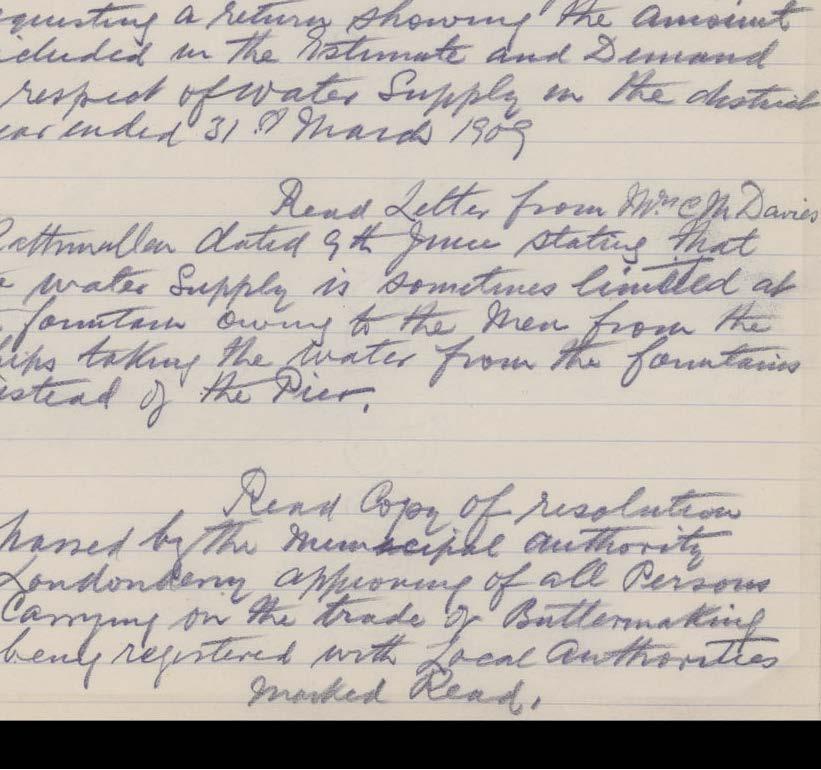 questing a return showing the amount
cluded in the Estimate and Demand
respect of Water Supply in the district
ear ended 31st March 1909
Read Letter from Mrs C M Davies
Rathmullen dated 9th June stating that
e water Supply is sometimes limited at
fountain owing to the Men from the
hips taking the water from the fountains
nstead of the Pier.
Read Copy of resolution
passed by the Municipal Authority
Londonderry approving of all Persons
Carrying on the trade of Buttermaking
being registered with Local Authorities
Marked Read.